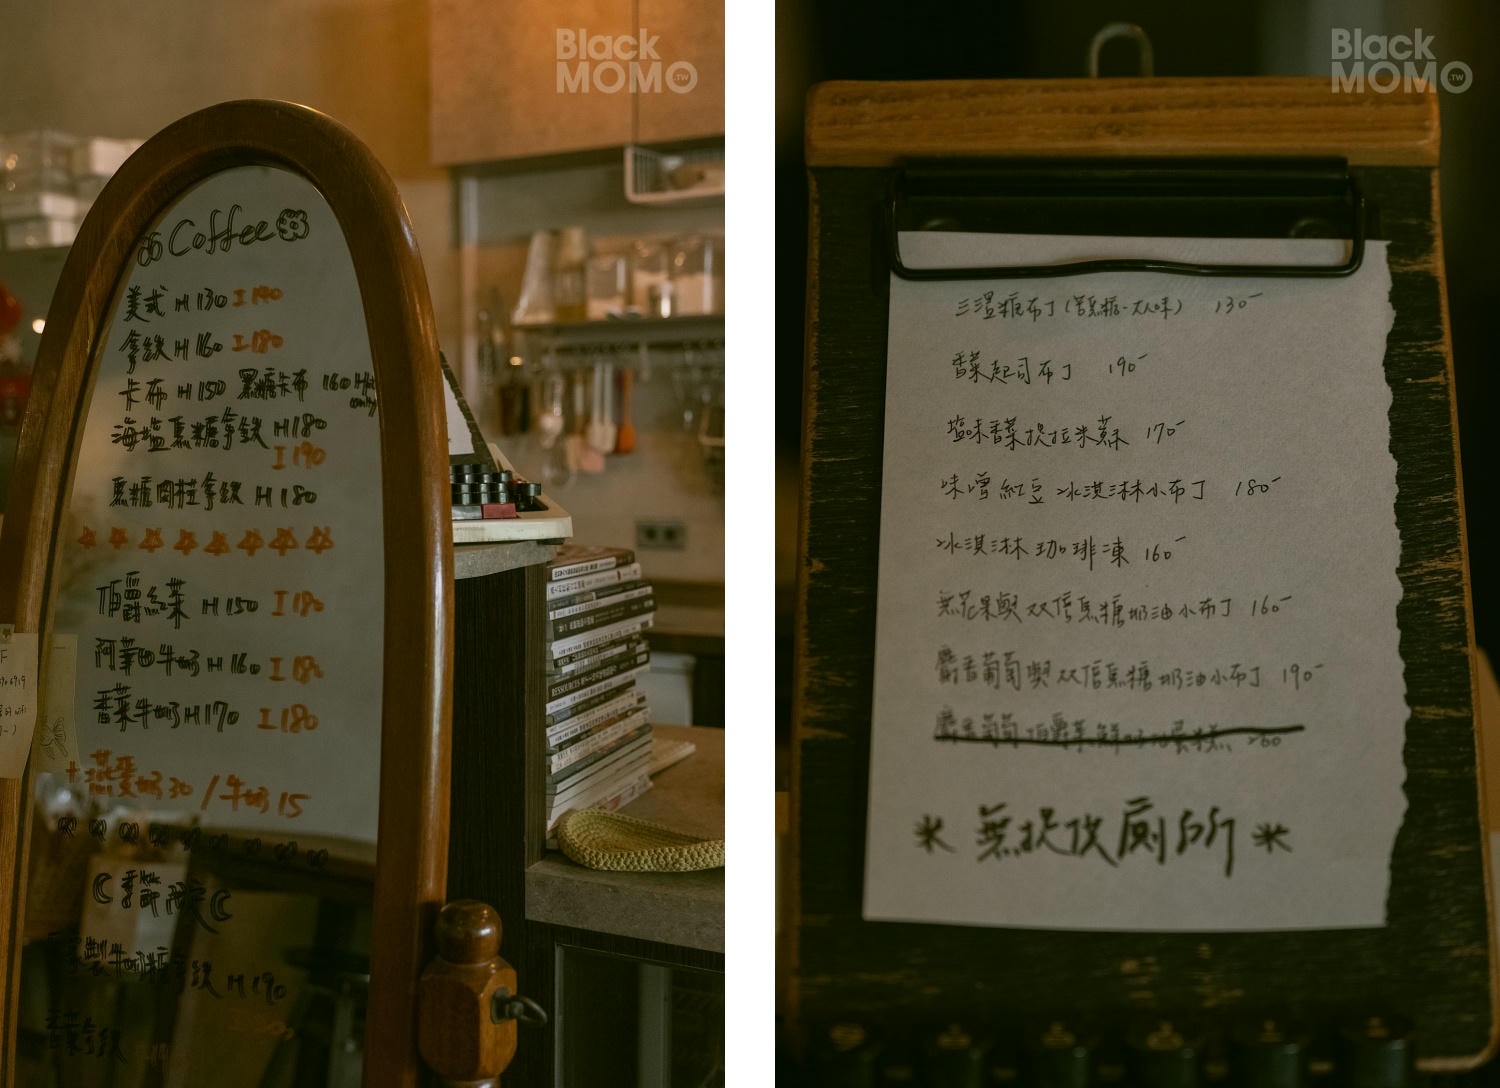 Black
MOMO.TW
Coffee
美式 H 130 I 140
拿鐵 H 160 I 180
卡布 H 150 黑糖卡布 160 Hot only
海塩焦糖拿鐵 H 180
I 190
焦糖肉桂拿鐵 H 180
伯爵紅茶 H 150 I 180
阿華田牛奶 H 160 I 180
香菜牛奶 H 170 I 180
+燕麥奶 30 / 牛奶 15
限定
製牛奶糖拿鐵 H 190
香菜拿鐵
RESSOURCES
Black
MOMO.TW
三溫糖布丁(苦焦糖-大人味) 130-
香菜起司布丁 190-
塩味香菜提拉米蘇 170-
味噌紅豆冰淇淋小布丁 180-
冰淇淋咖啡凍 160-
無花果與双倍焦糖奶油小布丁 160-
麝香葡萄與双倍焦糖奶油小布丁 190-
麝香葡萄伯爵茶鮮奶油蛋糕 200
* 無提供廁所 *